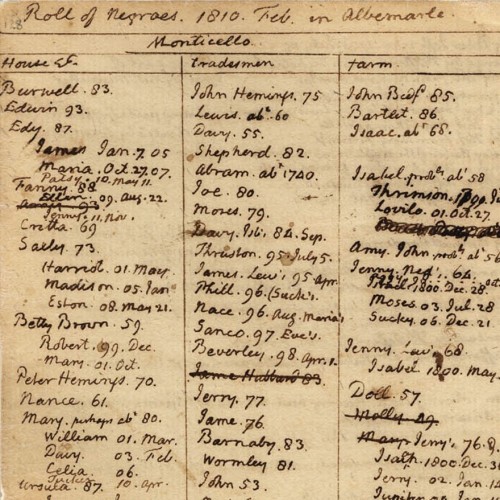 Roll of Negroes. 1810. Feb. in Albemarle
Monticello.
House &c.
Burwell. 83.
Edwin 93.
Edy. 87.
James Jan. 7. 05
Maria. Oct. 27. 07.
Patsy. 10. May 11.
Fanny. 88
Ellen. 09. Aug. 22.
Jenny. 11. Nov.
Cretta. 69
Sally. 73.
Harriot. 01. May.
Madison. 05. Jan.
Eston. 08. May 21.
Betty Brown. 59.
Robert. 99. Dec.
Mary. 01. Oct.
Peter Hemings. 70.
Nance. 61.
Mary. perhaps abt. 80.
William 01. Mar.
Davy. 03. Feb.
Celia 06.
Tucker 10. apr.
Ursula. 87.
tradesmen
John Hemings. 75
Lewis. abt. 60
Davy. 55.
Shepherd. 82.
Abram. abt. 1740.
Joe. 80.
Moses. 79.
Davy. Isb.' 84. Sep.
Thruston. 95. July 5.
James. Lew's 95. apr.
Phill. 96. (Suck's.
Nace. 96. Aug. Maria's
Sanco. 97. Eve's.
Beverley. 98. Apr. 1.
Jame Hubbard 83.
Jerry. 77.
Jame. 76.
Barnaby. 83.
Wormley 81.
John 53.
farm
John Bedf. 85.
Bartlet. 86.
Isaac. abt. 68.
Isabel. probb. abt. 58
Lovilo. 01. Oct. 27.
Amy. John, probb. abt. 56
Jenny. Ned's. 64.
Phill. 1800. Dec. 28
Moses. 03. Jul. 28
Sucky. 06. Dec. 21.
Jenny. Lew.' 68.
Isabel 1800. May.
Doll. 57.
Molly. 89.
Mary. Jerry's. 76.
Isaiah. 1800. Dec.
Jerry. 02. Jan.